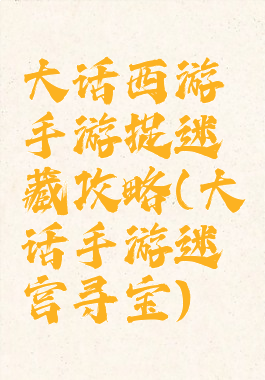 大话西游
手游捉迷
藏攻略(大
话手游迷
宫寻宝)